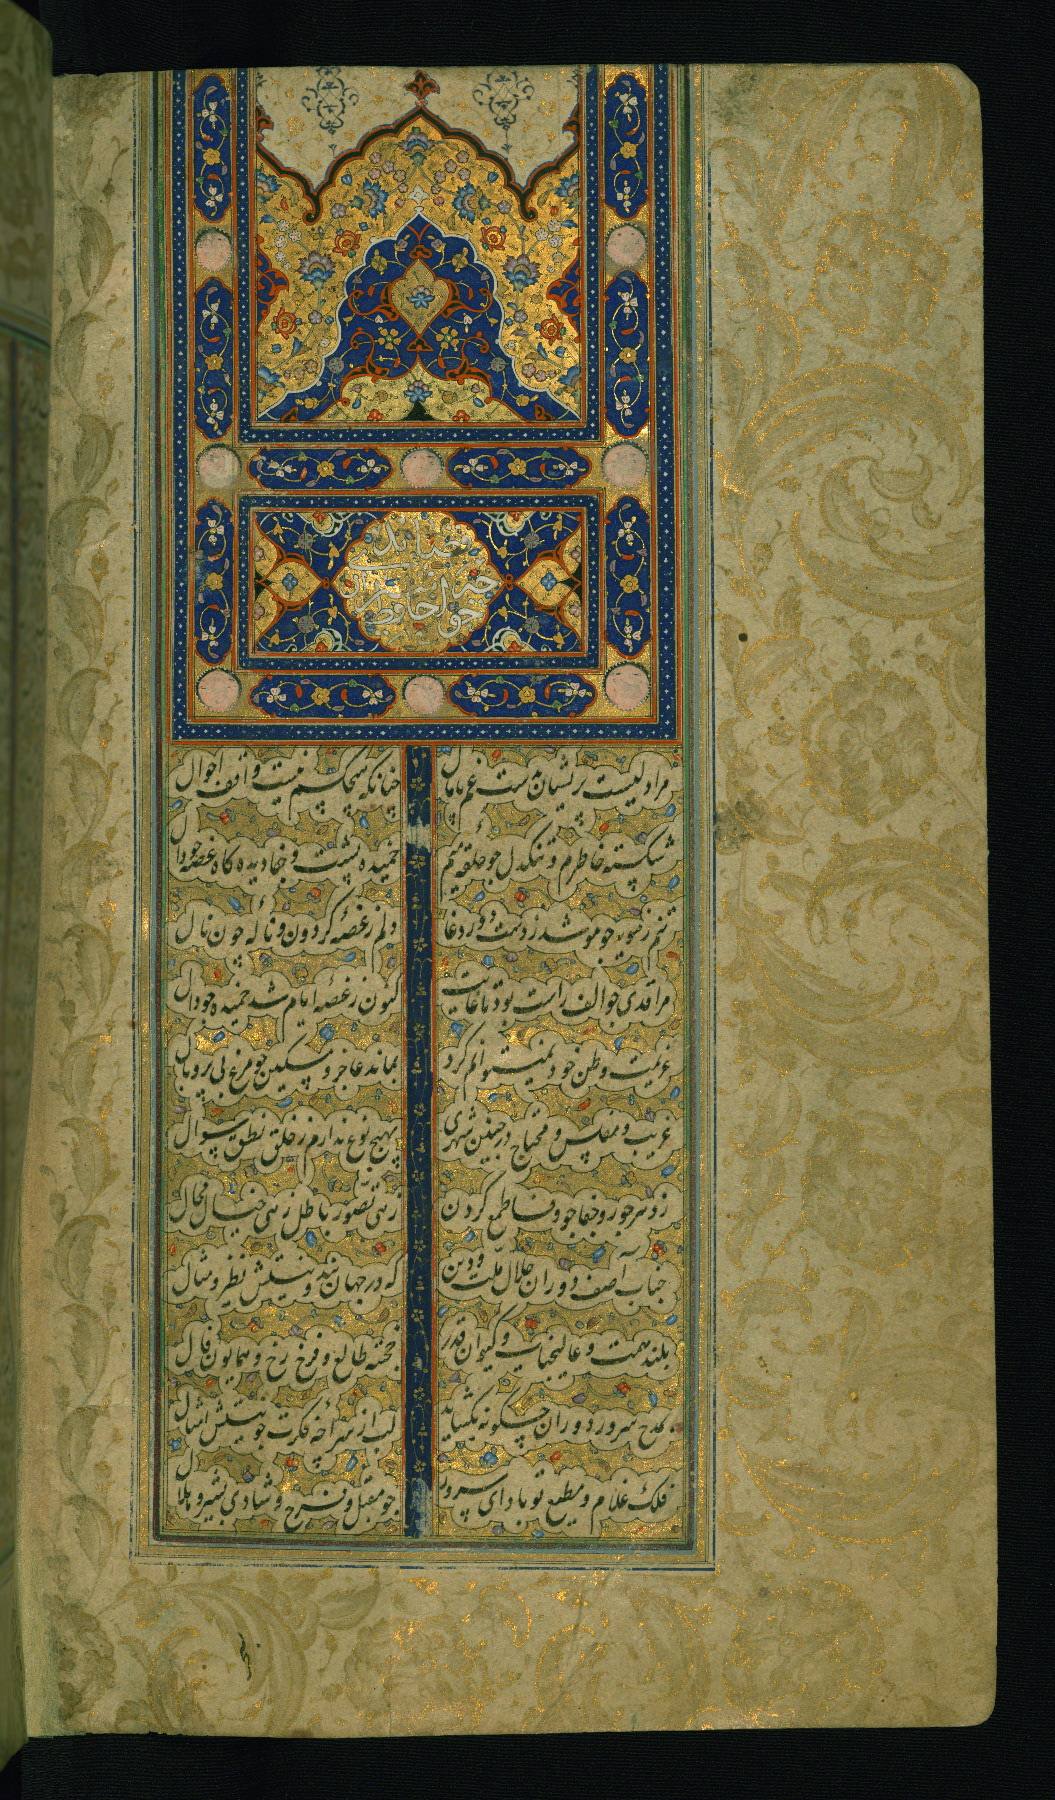 قصاید
خواجه حافظ
مرا دلیست پریشان بدست غم پامال چنانکه هیچکسم نیست واقف احوال
شکسته خاطرم و تنکدل جو حلقهٔ میم خمیده پشت و جفا دیده کاه غصه جو دال
تنم ز مویه جو مو شد ز دست درد و دغا دلم ز غصهٔ کردون و ناله چون نال
مرا قدی جو الف راست بود تا غایت کنون ز غصهٔ ایام شد خمیده جو دال
عزیمت وطن خود نمیتوانم کرد بماند عاجز و مسکین جو مرغ بی پر و بال
غریب و مفلس و محتاج در چنین شهری بهیچ نوع ندارم ز خلق نطق سوال
ز دهر جور و جفا جو وفا طمع کردن زهی تصور باطل زهی خیال محال
جناب آصف دوران جلال ملت و دین که در جهان نبد و نیستش نظیر و مثال
بلند همت و عالیجناب و کیوان قدر خجسته طالع و فرخ رخ و همایون فال
بمدح سرور دوران چکونه بکشاید لب از فکرت جو نیستش امثال
فلک غلام و مطیع تو باد ای سرور جو مقبل و فرح و شادی و بشیر و بلال